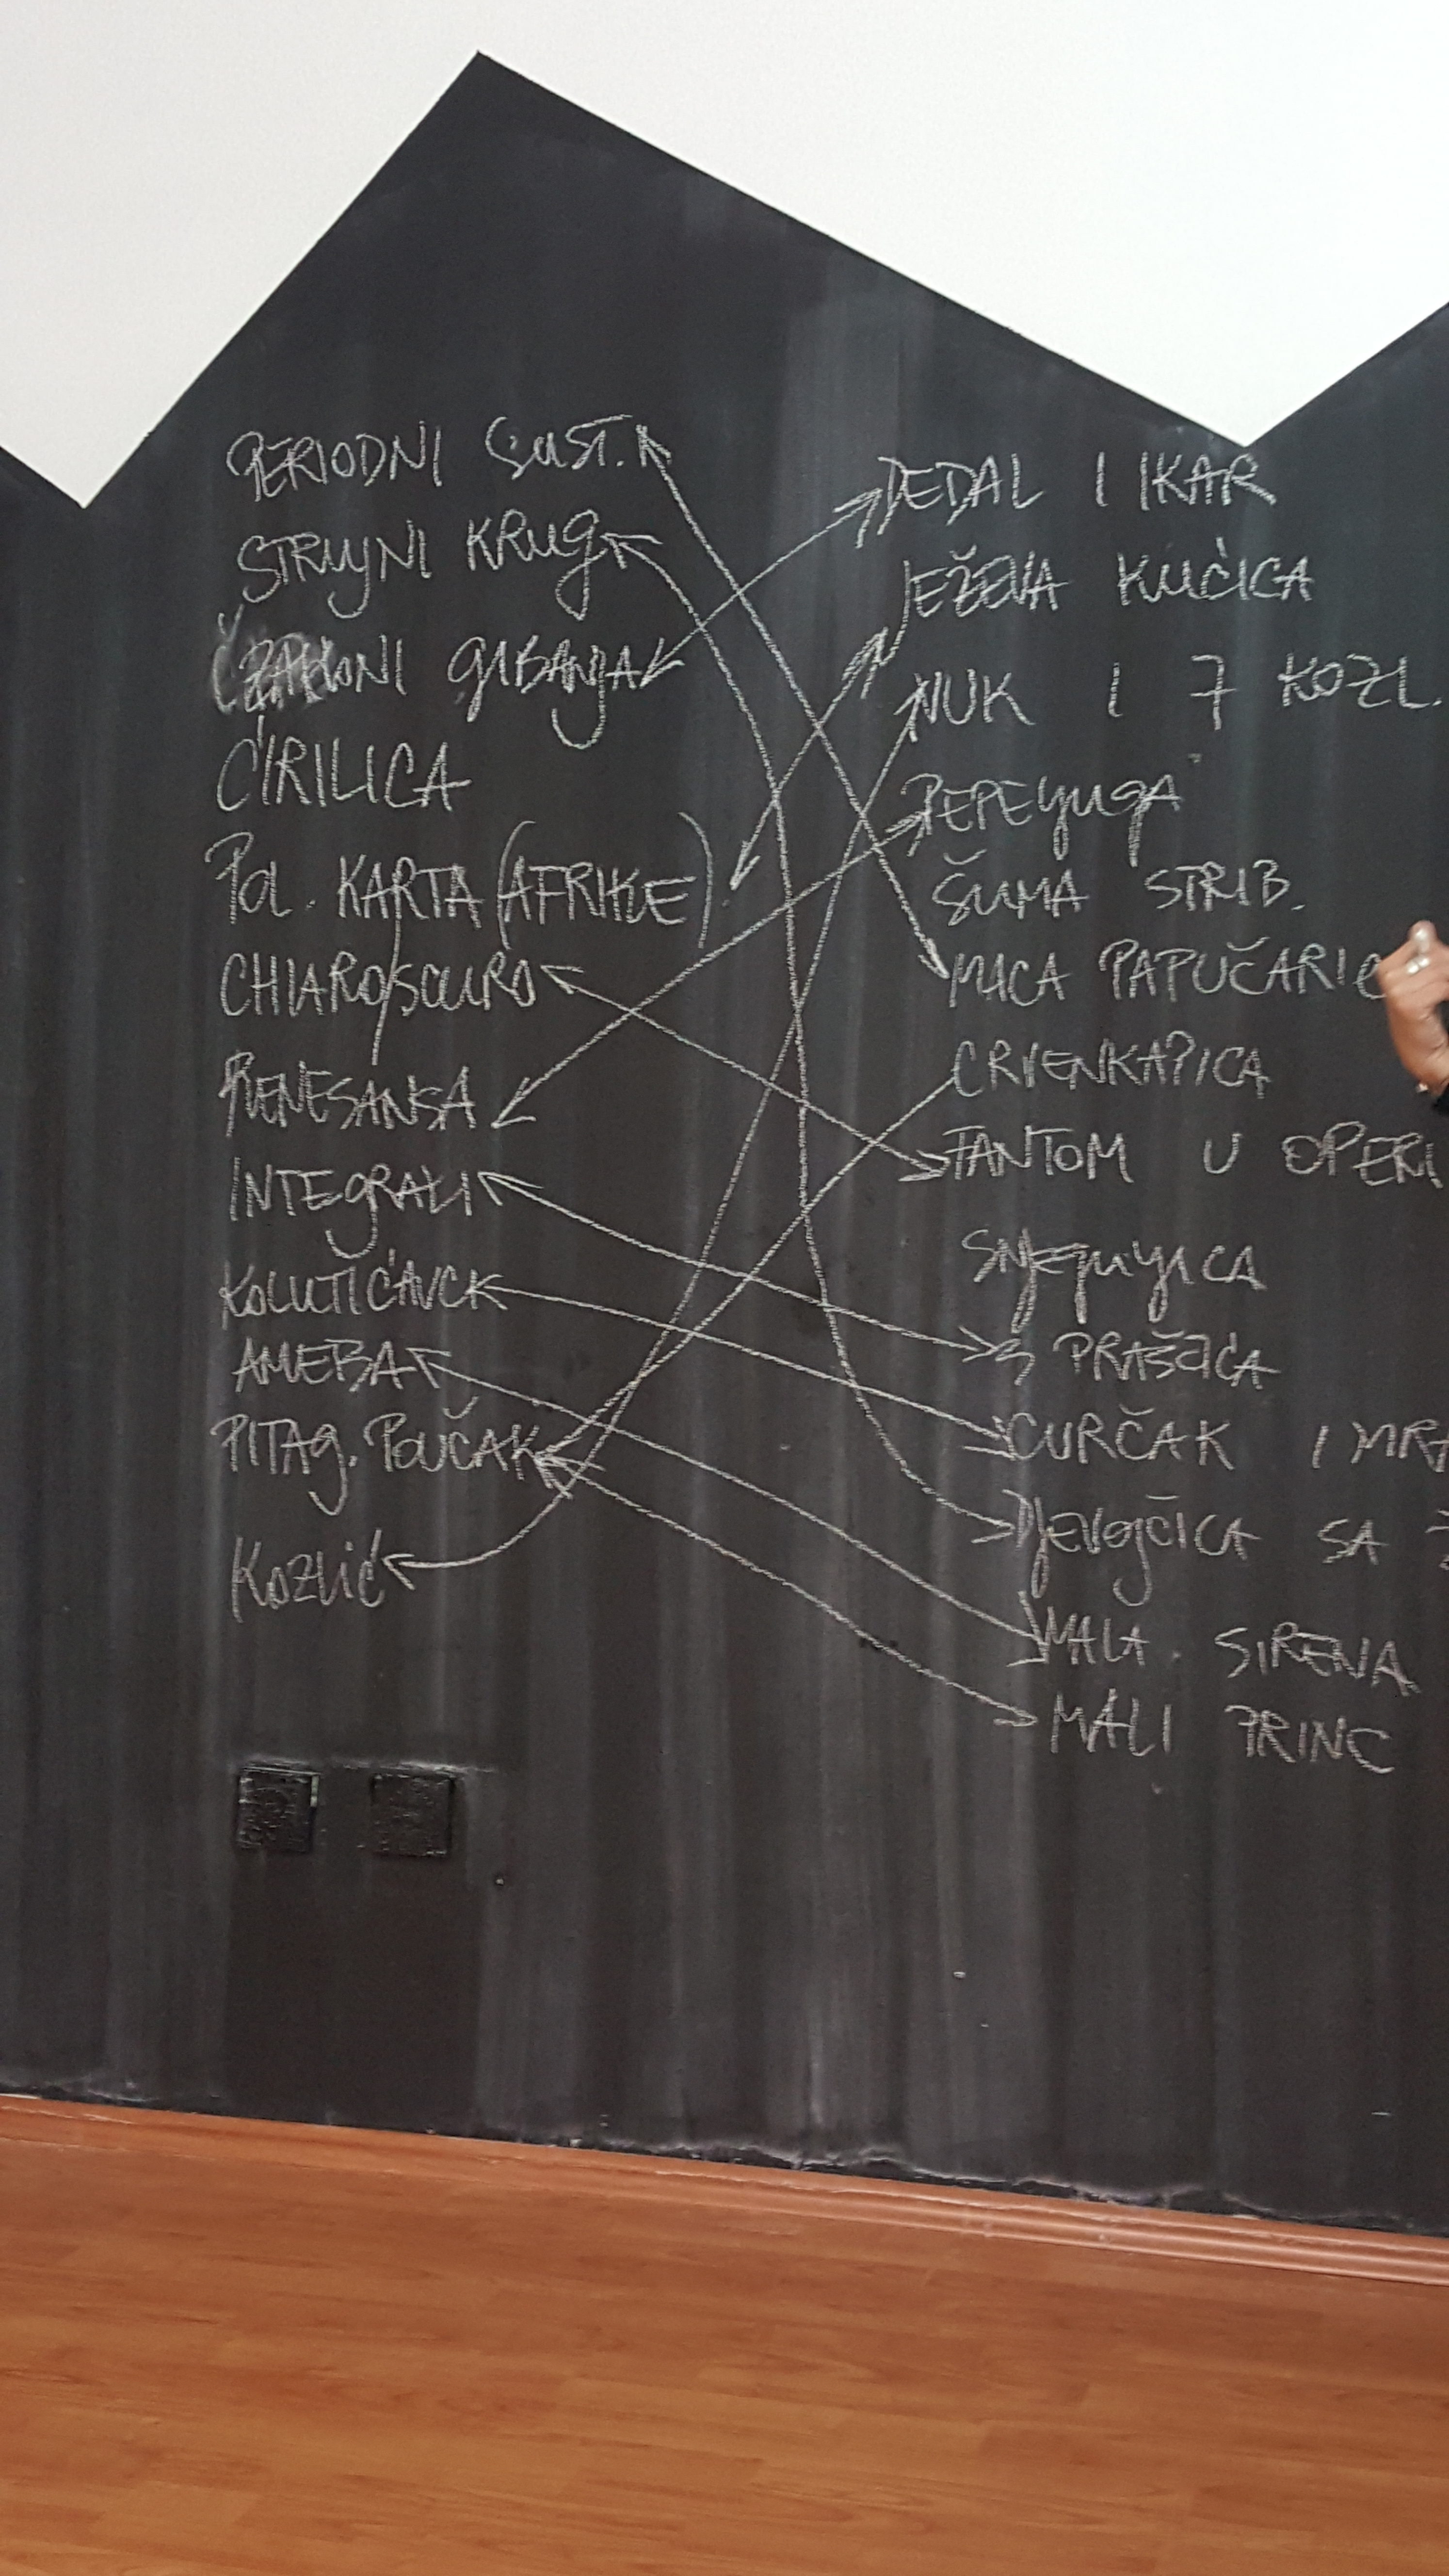 PERIODNI SUST.
STRUJNI KRUG
ZAKONI GIBANJA
ĆIRILICA
POL. KARTA (AFRIKE)
CHIAROSCURO
RENESANSA
INTEGRALI
KOLUTIĆAVCI
AMEBA
PITAG. POUČAK
KOZLIĆ
DEDAL I IKAR
JEŽEVA KUĆICA
VUK I 7 KOZL.
PEPELJUGA
ŠUMA STRIB.
MACA PAPUČARIC
CRVENKAPICA
FANTOM U OPERI
SNJEGULJICA
3 PRAŠČIĆA
CVRČAK I MRA
DJEVOJČICA SA
MALA SIRENA
MALI PRINC